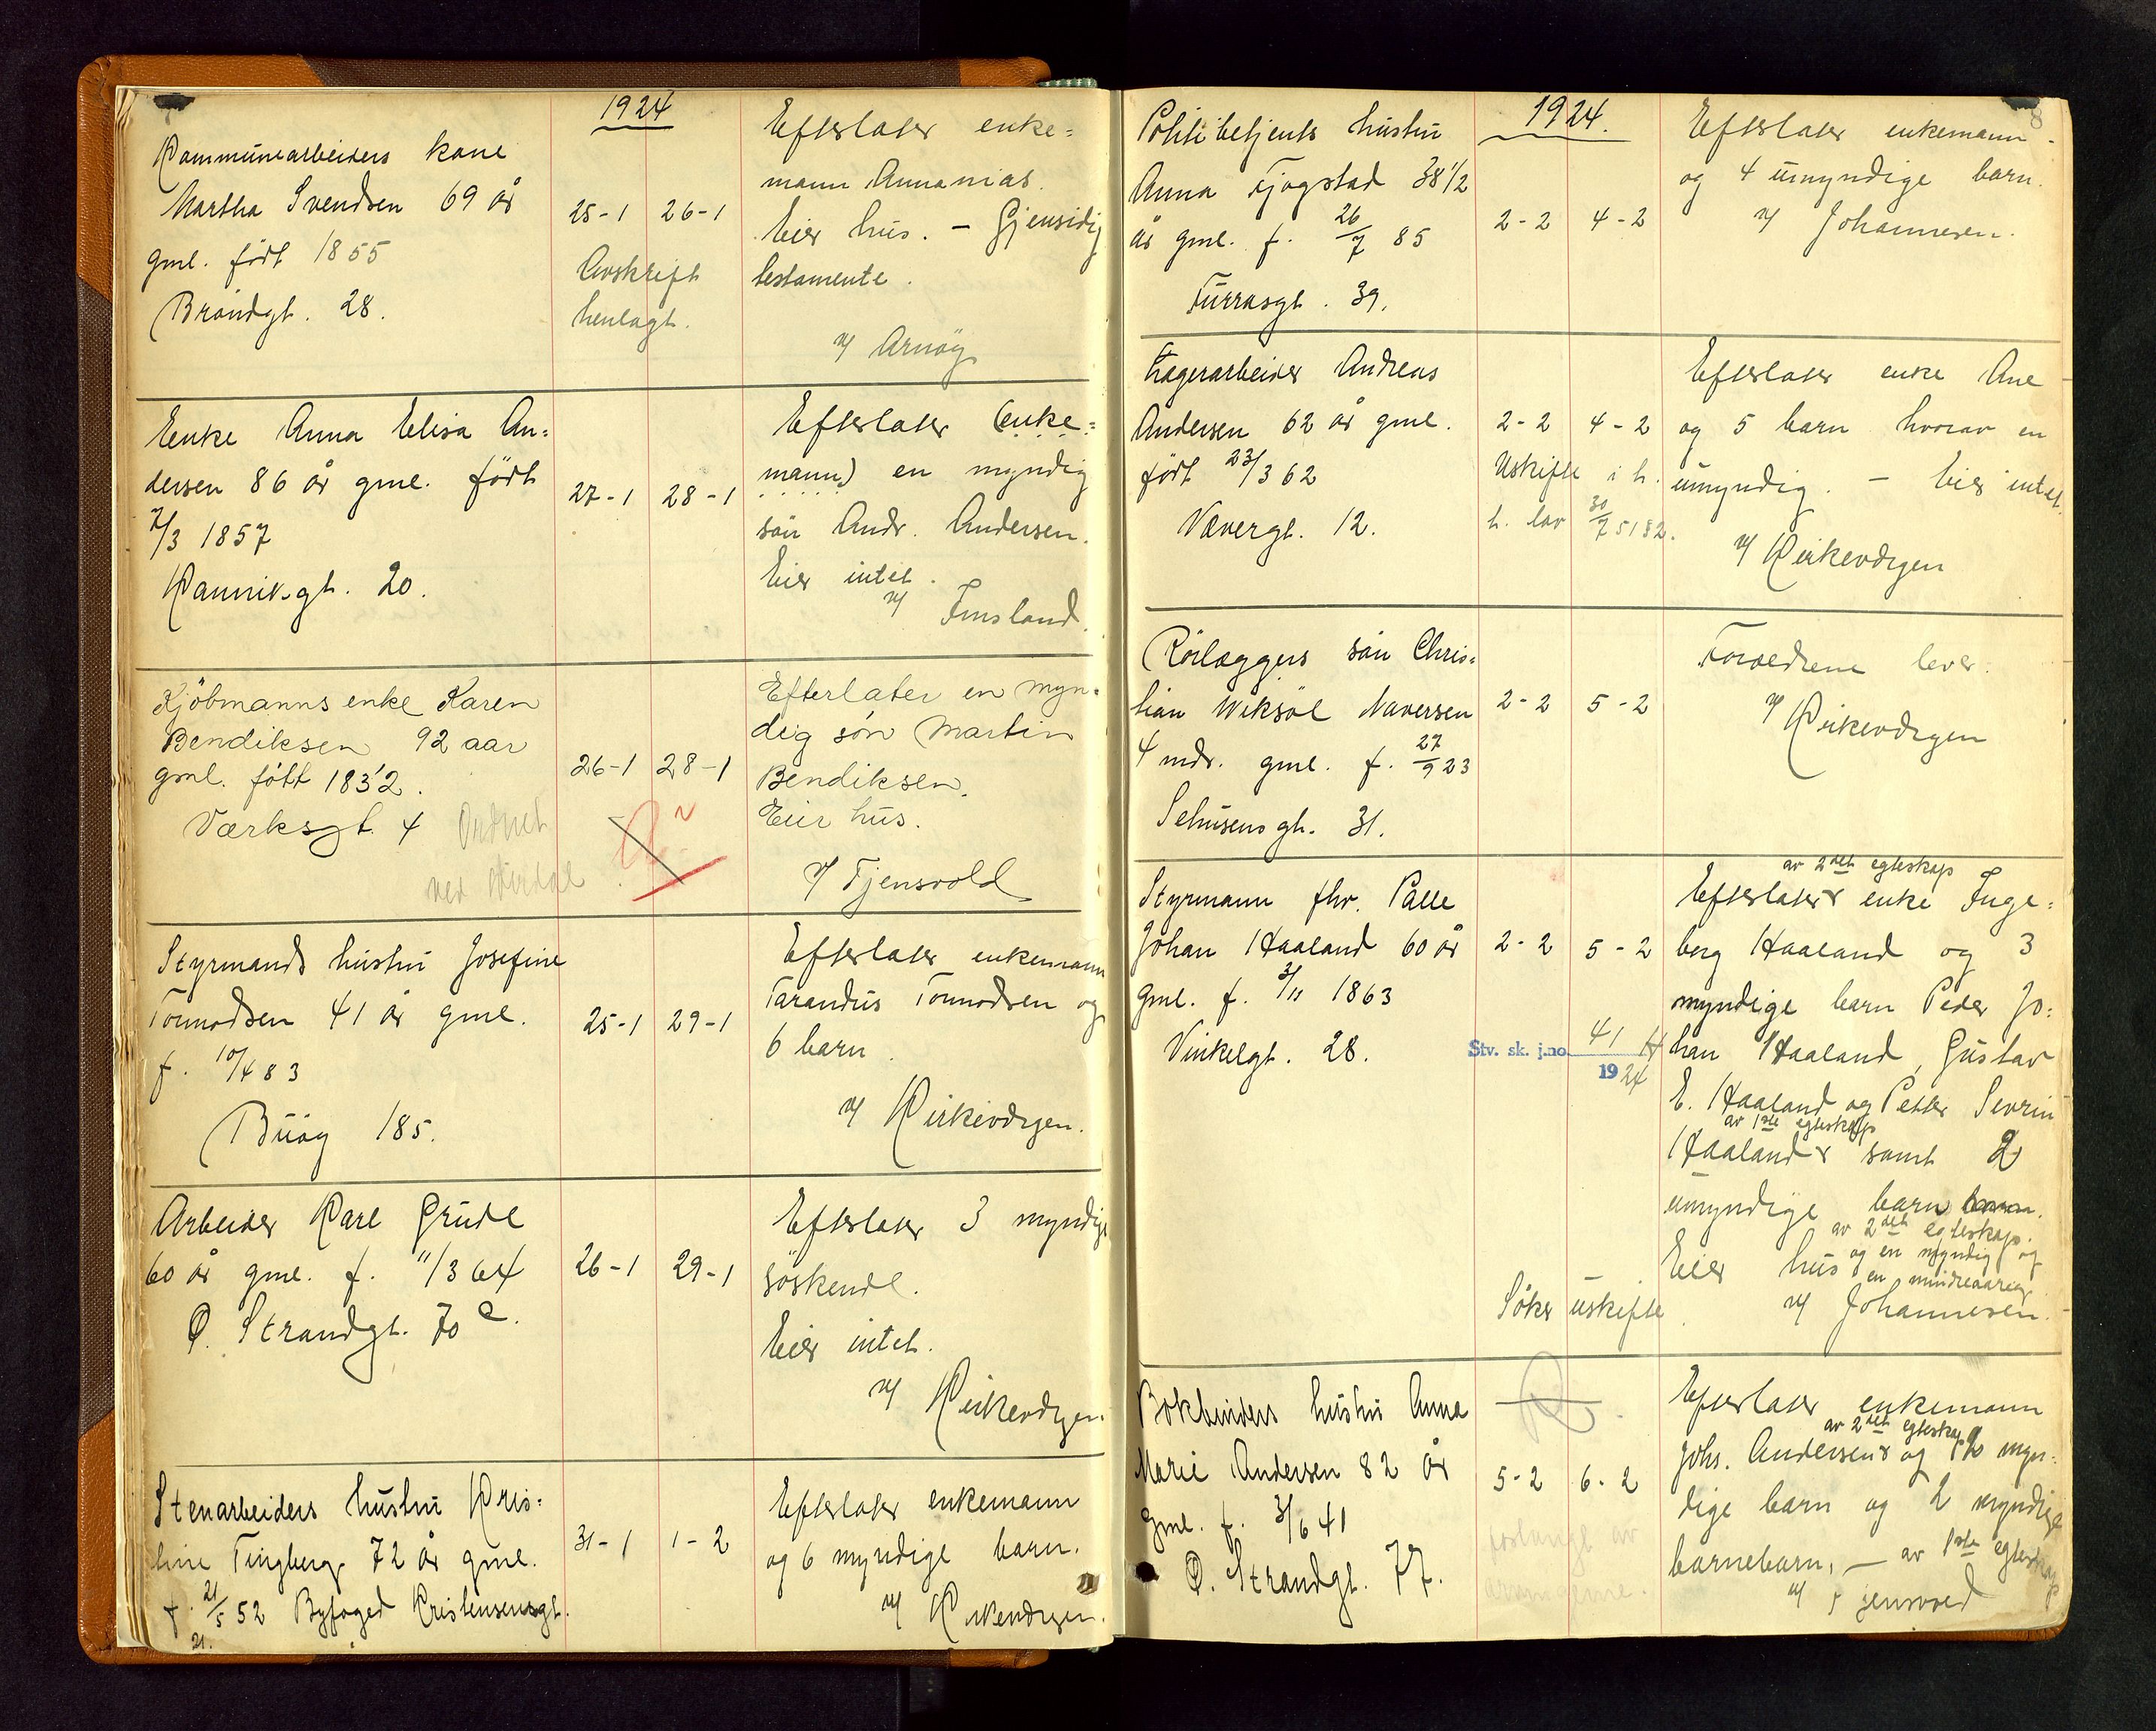 1924
Kommunearbeiders kone
Martha Svendsen 69 år
gml. født 1855
Brandgt. 28.
25-1 26-1
Avskrift
henlagt.
Efterlater enke=
mann Annanias.
Eier hus. - Gjensidig
testamente.
v/ Arnøy
Enke Anna Elisa An=
dersen 86 år gml. født
7/3 1857
Kannikgt. 20.
27-1 28-1
Efterlater (enke=
mann) en myndig
søn Andr. Andersen.
Eier intet.
v/ Imsland.
Kjöbmanns enke Karen
Bendiksen 92 aar
gml. fött 1832.
Værksgt. 4 Ordnet
ved
26-1 28-1
Efterlater en myn=
dig søn Martin
Bendiksen.
Eier hus.
v/ Tjensvold
Styrmands hustru Josefine
Tonnodsen 41 år gml.
f. 10/4 83
Buøy 185.
25-1 29-1
Efterlater enkemann
Tarandus Tonnodsen og
6 barn.
v/ Kirkevergen.
Arbeider Karl Grude
60 år gml. f. 11/3 64
Ø. Strandgt. 70 c.
26-1 29-1
Efterlater 3 myndige
søskende.
Eier intet.
v/ Kirkevergen
Stenarbeiders hustru Kris=
tine Tingberg 72 år gml.
f. 21/5 52 Byfoged Kristensensgt.
21.
31-1 1-2
Efterlater enkemann
og 6 myndige barn.
v/ Kirkevergen.
8
1924.
Politibetjents hustru
Anna Fjogstad 38 1/2
år gml. f. 26/7 85
Furrasgt. 39.
2-2 4-2
Efterlater enkemann
og 4 umyndige barn.
v/ Johannesen.
Lagerarbeider Andreas
Andersen 62 år gml.
født 23/3 62
Vævergt. 12.
2-2 4-2
Uskifte i h.
t. lov 30/7 5182.
Efterlater enke Ane
og 5 barn hvorav en
umyndig. - Eier intet.
v/ Kirkevergen
Rørlæggers søn Chris=
tian Wiksøl Naversen
4 mdr. gml. f. 27/9 23
Sehusens gt. 31.
2-2 5-2
Forældrene lever.
v/ Kirkevergen
Styrmann fhv. Palle
Johan Haaland 60 år
gml. f. 3/11 1863
Vinkelgt. 28.
2-2 5-2
Stv. sk. j.no. 41
1924
Søker uskifte
av 2det egteskap
Efterlater enke Inge=
borg Haaland og 3
myndige barn Peder Jo=
han Haaland, Gustav
E. Haaland og Petter Sevrin
av 1ste egteskap
Haaland samt 2
umyndige barn barn.
av 2det egteskap.
Eier hus og en myndig og
en mindreaarig
v/ Johannesen.
Bokbinders hustru Anna
Marie Andersen 82 år
gml. f. 3/6 41
Ø. Strandgt. 77.
5-2 6-2
forlangt av
arvingerne.
Efterlater enkemann
av 2det egteskap
Johs. Andersen og myn=
dige barn og 2 myndige
barnebarn, - av 1ste egteskap
v/ Tjensvold